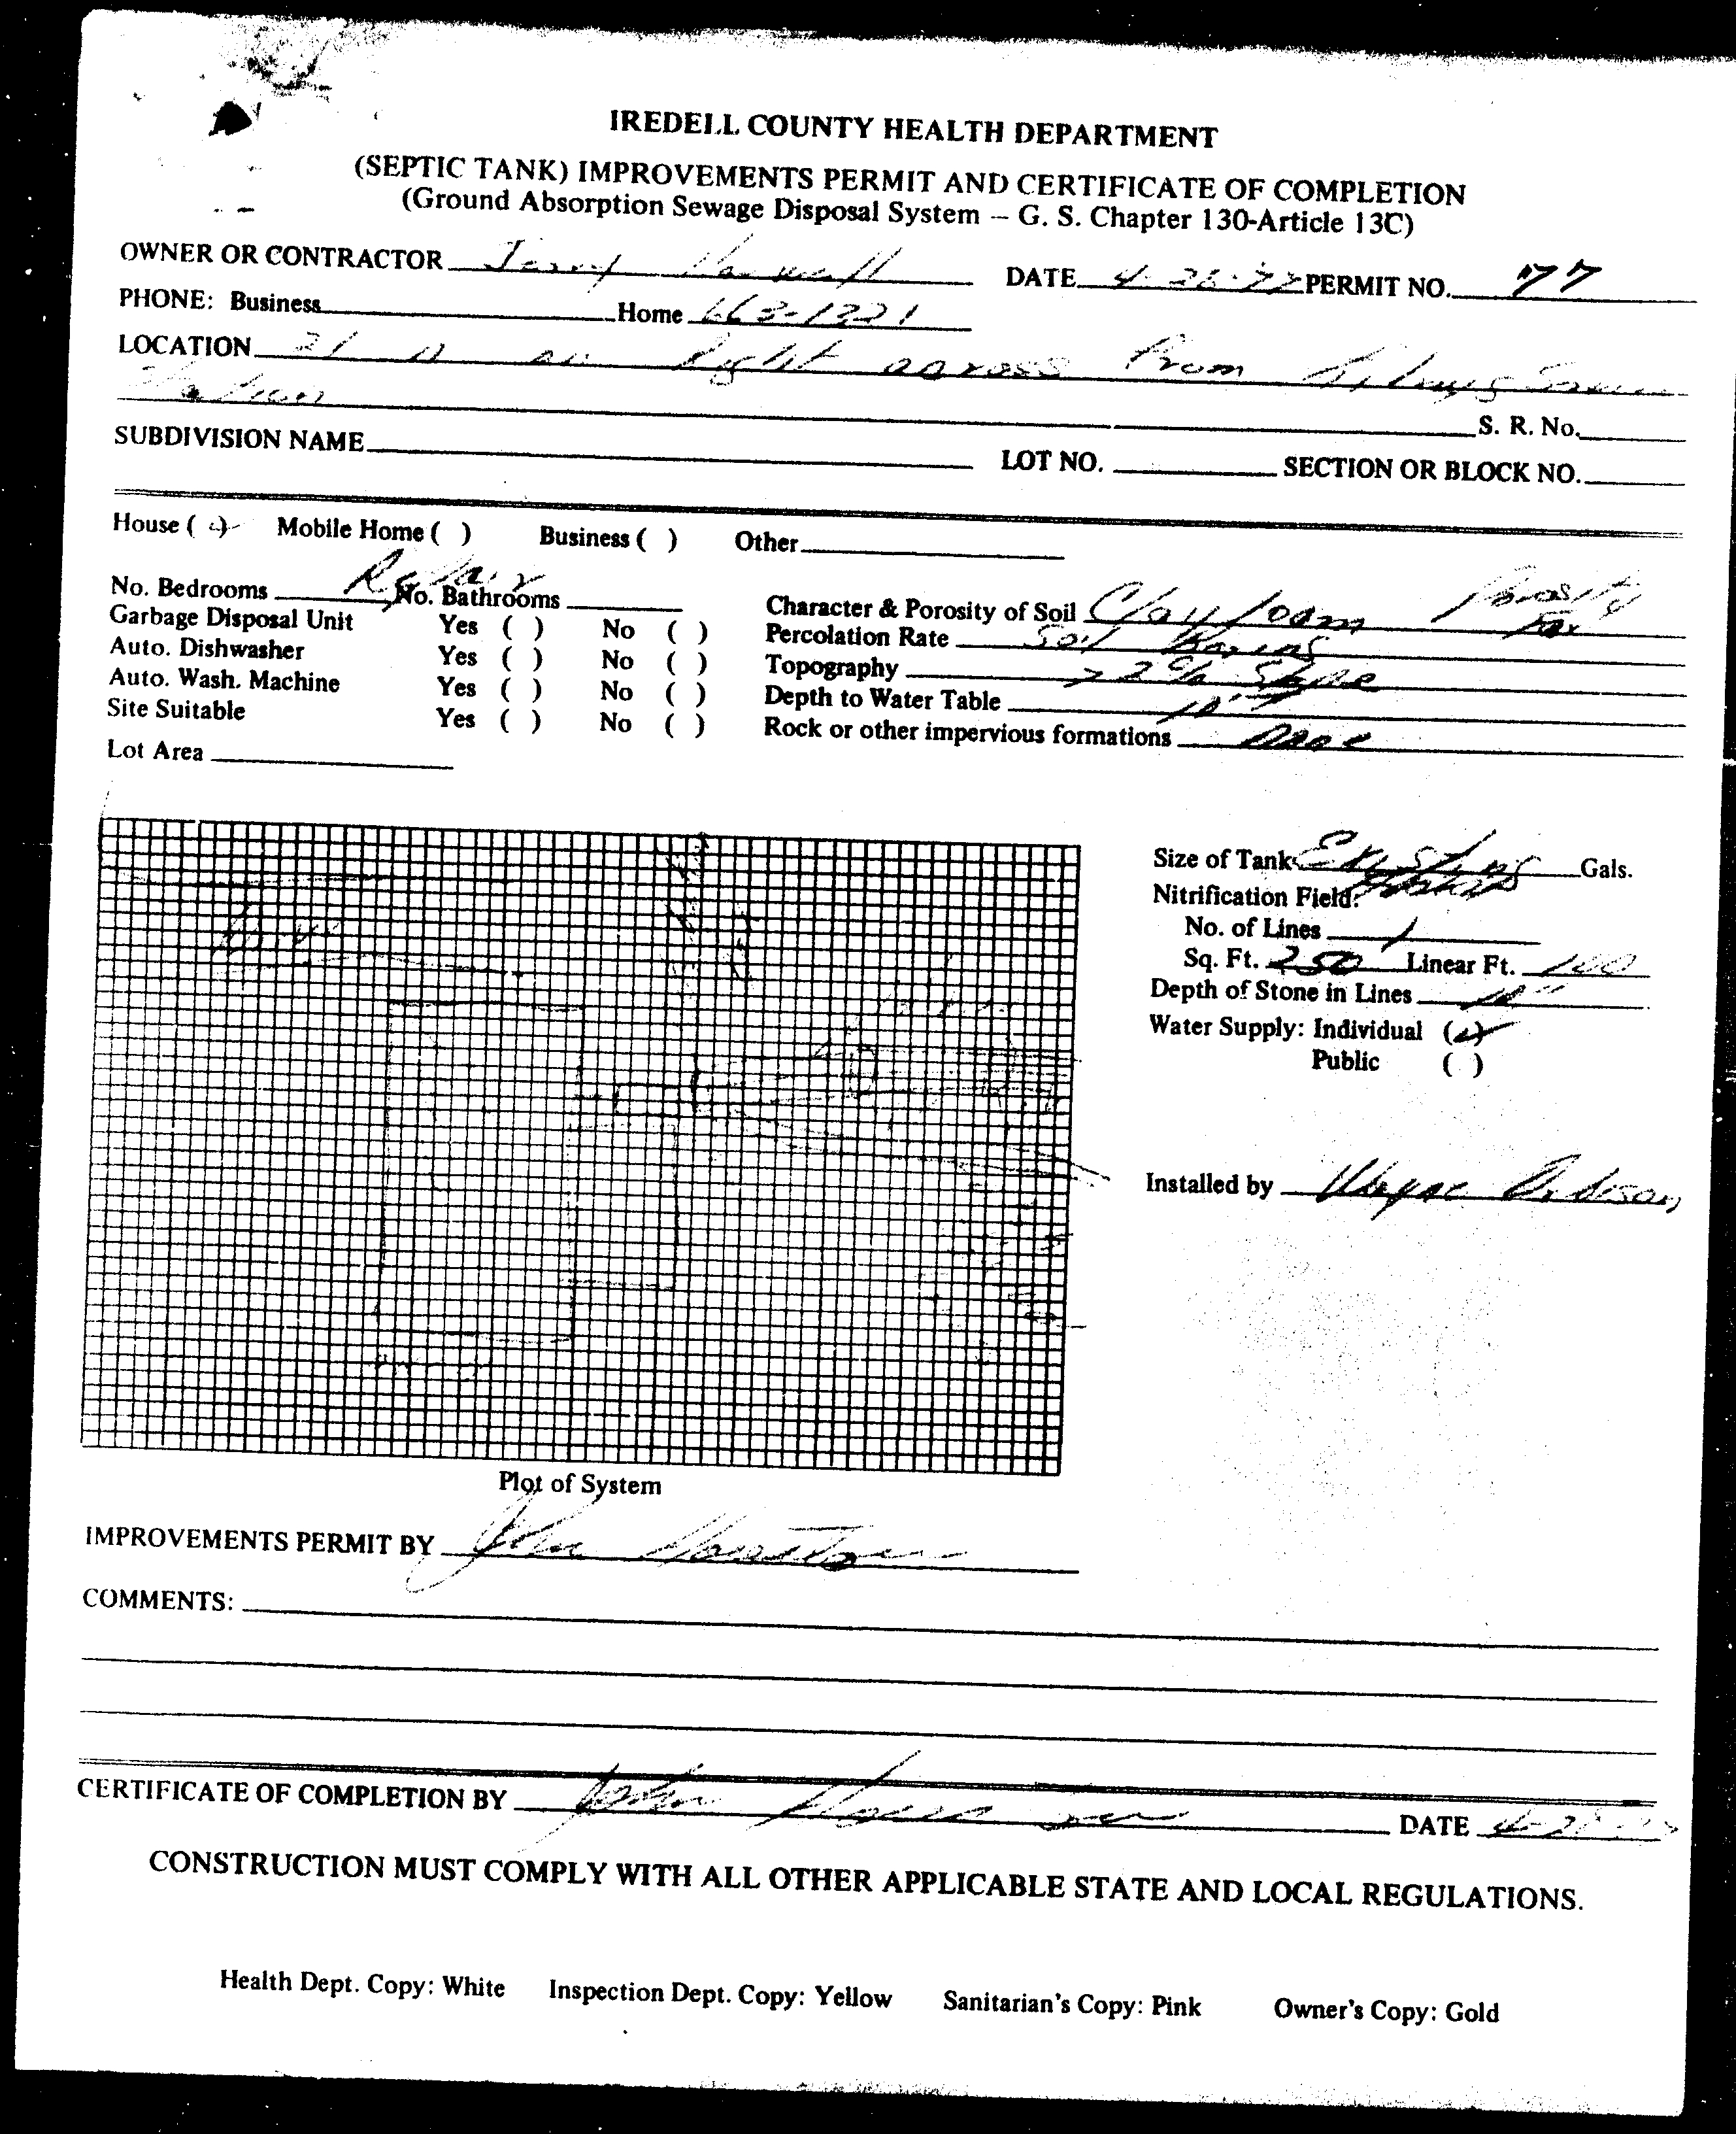 IREDELL COUNTY HEALTH DEPARTMENT
(SEPTIC TANK) IMPROVEMENTS PERMIT AND CERTIFICATE OF COMPLETION
(Ground Absorption Sewage Disposal System — G. S. Chapter 130-Article 13C)
OWNER OR CONTRACTOR DATE PERMIT NO. 77
PHONE: Business Home 663-1221
LOCATION 21 N on Right across From
Station
S. R. No.
SUBDIVISION NAME LOT NO. SECTION OR BLOCK NO.
House ( ) Mobile Home ( ) Business ( ) Other
No. Bedrooms Repair No. Bathrooms
Garbage Disposal Unit Yes ( ) No ( )
Auto. Dishwasher Yes ( ) No ( )
Auto. Wash. Machine Yes ( ) No ( )
Site Suitable Yes ( ) No ( )
Lot Area
Character & Porosity of Soil Clay loam Porosity
Percolation Rate Soil Boring
Topography > 2% Slope
Depth to Water Table
Rock or other impervious formations none
Size of Tank Existing Gals.
Nitrification Field:
No. of Lines 1
Sq. Ft. 250 Linear Ft. 100
Depth of Stone in Lines
Water Supply: Individual ( )
Public ( )
Installed by Wayne
Plot of System
IMPROVEMENTS PERMIT BY John
COMMENTS:
CERTIFICATE OF COMPLETION BY John DATE
CONSTRUCTION MUST COMPLY WITH ALL OTHER APPLICABLE STATE AND LOCAL REGULATIONS.
Health Dept. Copy: White Inspection Dept. Copy: Yellow Sanitarian's Copy: Pink Owner's Copy: Gold